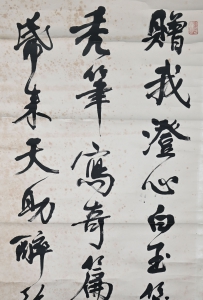 贈我澄心白玉
禿筆寫奇篇
來天助醉